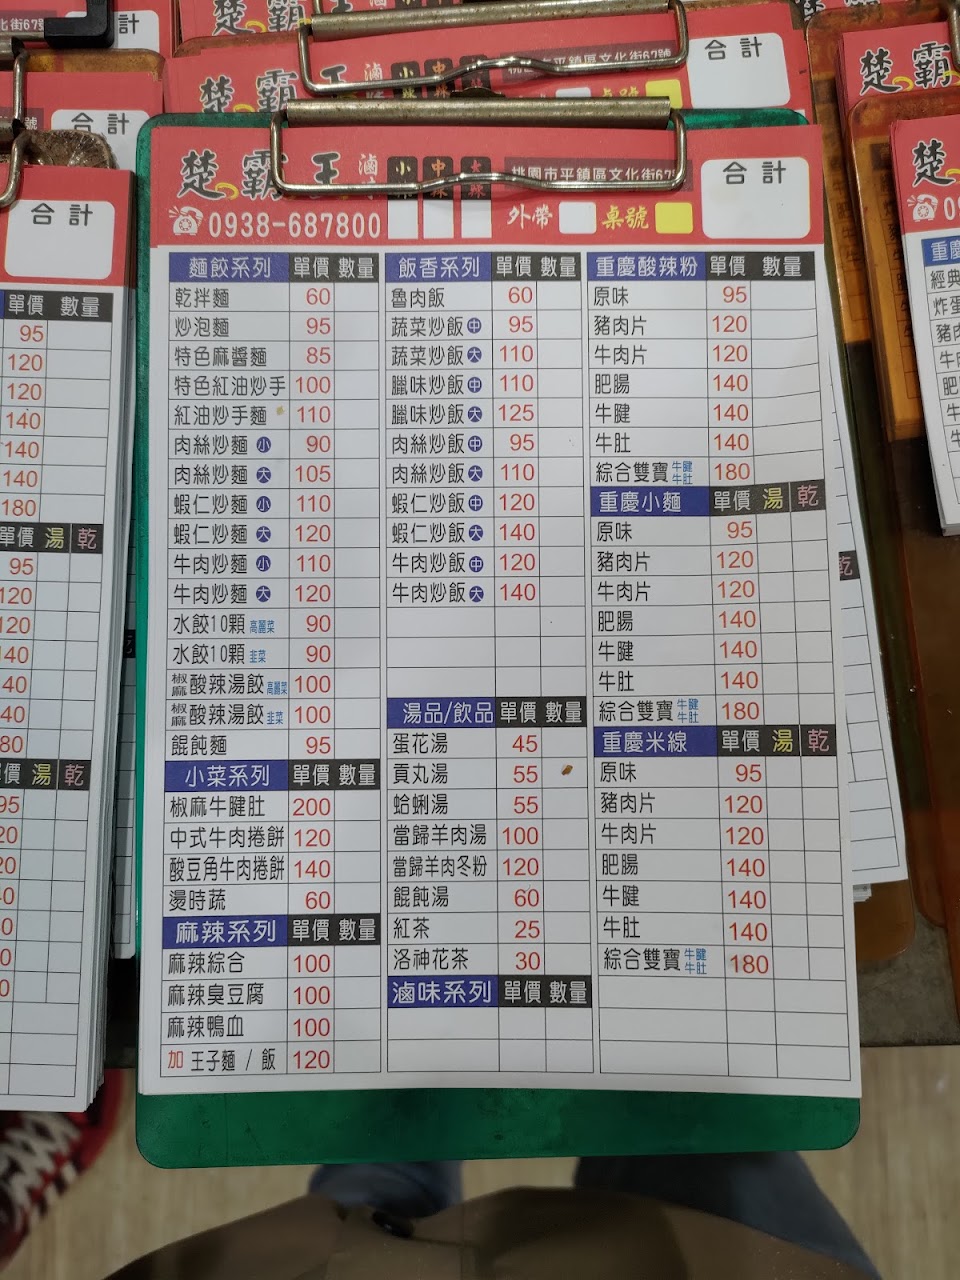 楚霸王 滷味 小辣 中辣 大辣 桃園市平鎮區文化街67號
合計
0938-687800 外帶 桌號
麵餃系列 單價 數量
乾拌麵 60
炒泡麵 95
特色麻醬麵 85
特色紅油炒手 100
紅油炒手麵 110
肉絲炒麵 小 90
肉絲炒麵 大 105
蝦仁炒麵 小 110
蝦仁炒麵 大 120
牛肉炒麵 小 110
牛肉炒麵 大 120
水餃10顆 高麗菜 90
水餃10顆 韭菜 90
椒麻酸辣湯餃 高麗菜 100
椒麻酸辣湯餃 韭菜 100
餛飩麵 95
小菜系列 單價 數量
椒麻牛腱肚 200
中式牛肉捲餅 120
酸豆角牛肉捲餅 140
燙時蔬 60
麻辣系列 單價 數量
麻辣綜合 100
麻辣臭豆腐 100
麻辣鴨血 100
加 王子麵 / 飯 120
飯香系列 單價 數量
魯肉飯 60
蔬菜炒飯 中 95
蔬菜炒飯 大 110
臘味炒飯 中 110
臘味炒飯 大 125
肉絲炒飯 中 95
肉絲炒飯 大 110
蝦仁炒飯 中 120
蝦仁炒飯 大 140
牛肉炒飯 中 120
牛肉炒飯 大 140
湯品/飲品 單價 數量
蛋花湯 45
貢丸湯 55
蛤蜊湯 55
當歸羊肉湯 100
當歸羊肉冬粉 120
餛飩湯 60
紅茶 25
洛神花茶 30
滷味系列 單價 數量
重慶酸辣粉 單價 數量
原味 95
豬肉片 120
牛肉片 120
肥腸 140
牛腱 140
牛肚 140
綜合雙寶 牛腱 牛肚 180
重慶小麵 單價 湯 乾
原味 95
豬肉片 120
牛肉片 120
肥腸 140
牛腱 140
牛肚 140
綜合雙寶 牛腱 牛肚 180
重慶米線 單價 湯 乾
原味 95
豬肉片 120
牛肉片 120
肥腸 140
牛腱 140
牛肚 140
綜合雙寶 牛腱 牛肚 180